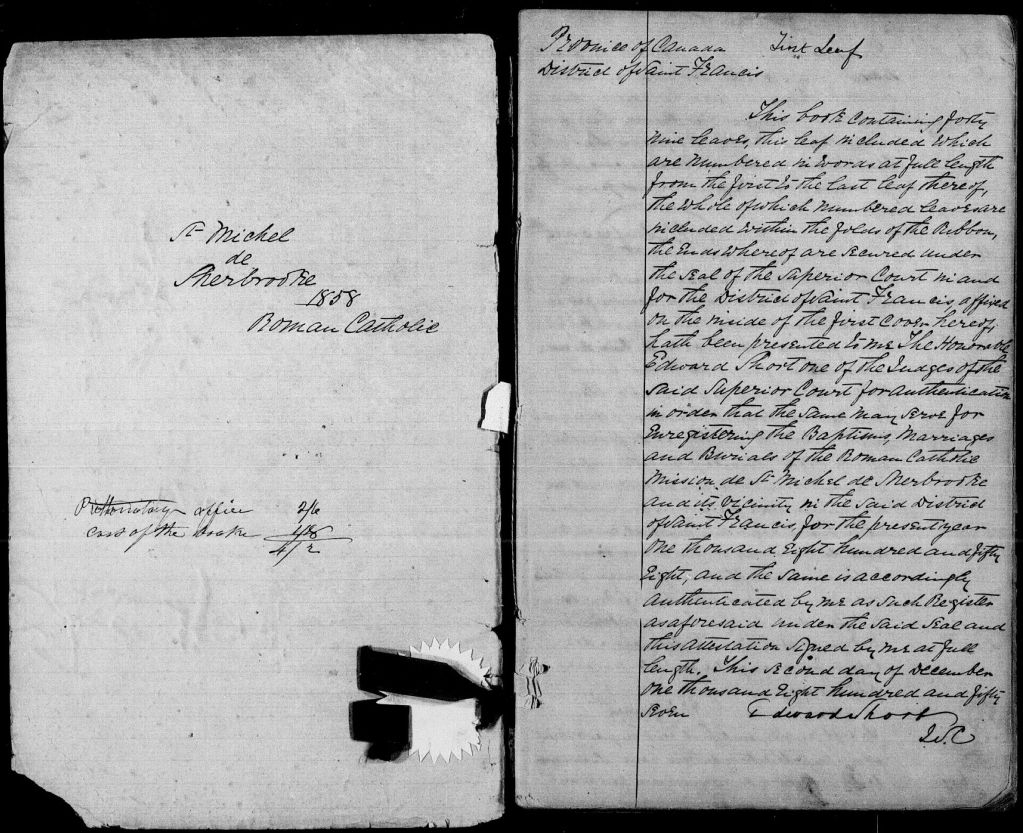 St Michel
de
Sherbrooke
1858
Roman Catholic
Prothonotary office 2/6
cost of the booke 1/8
4/2
Province of Canada First Leaf
District of Saint Francis
This book containing forty
nine leaves, this leaf included which
are numbered in words at full length
from the first to the last leaf thereof,
the whole of which numbered leaves are
included within the folds of the Ribbon,
the Ends whereof are secured under
the seal of the Superior Court in and
for the District of Saint Francis affixed
on the inside of the first cover hereof,
hath been presented to me The Honorable
Edward Short one of the Judges of the
said Superior Court for authentication
in order that the same may serve for
Enregistering the Baptisms, Marriages
and Burials of the Roman Catholic
Mission de St Michel de Sherbrooke
and its vicinity in the said District
of Saint Francis, for the present year
one thousand Eight hundred and fifty
Eight, and the same is accordingly
authenticated by me as such Register
as aforesaid under the said seal and
this attestation signed by me at full
length. This second day of December
one thousand Eight hundred and fifty
seven Edward Short
J.S.C